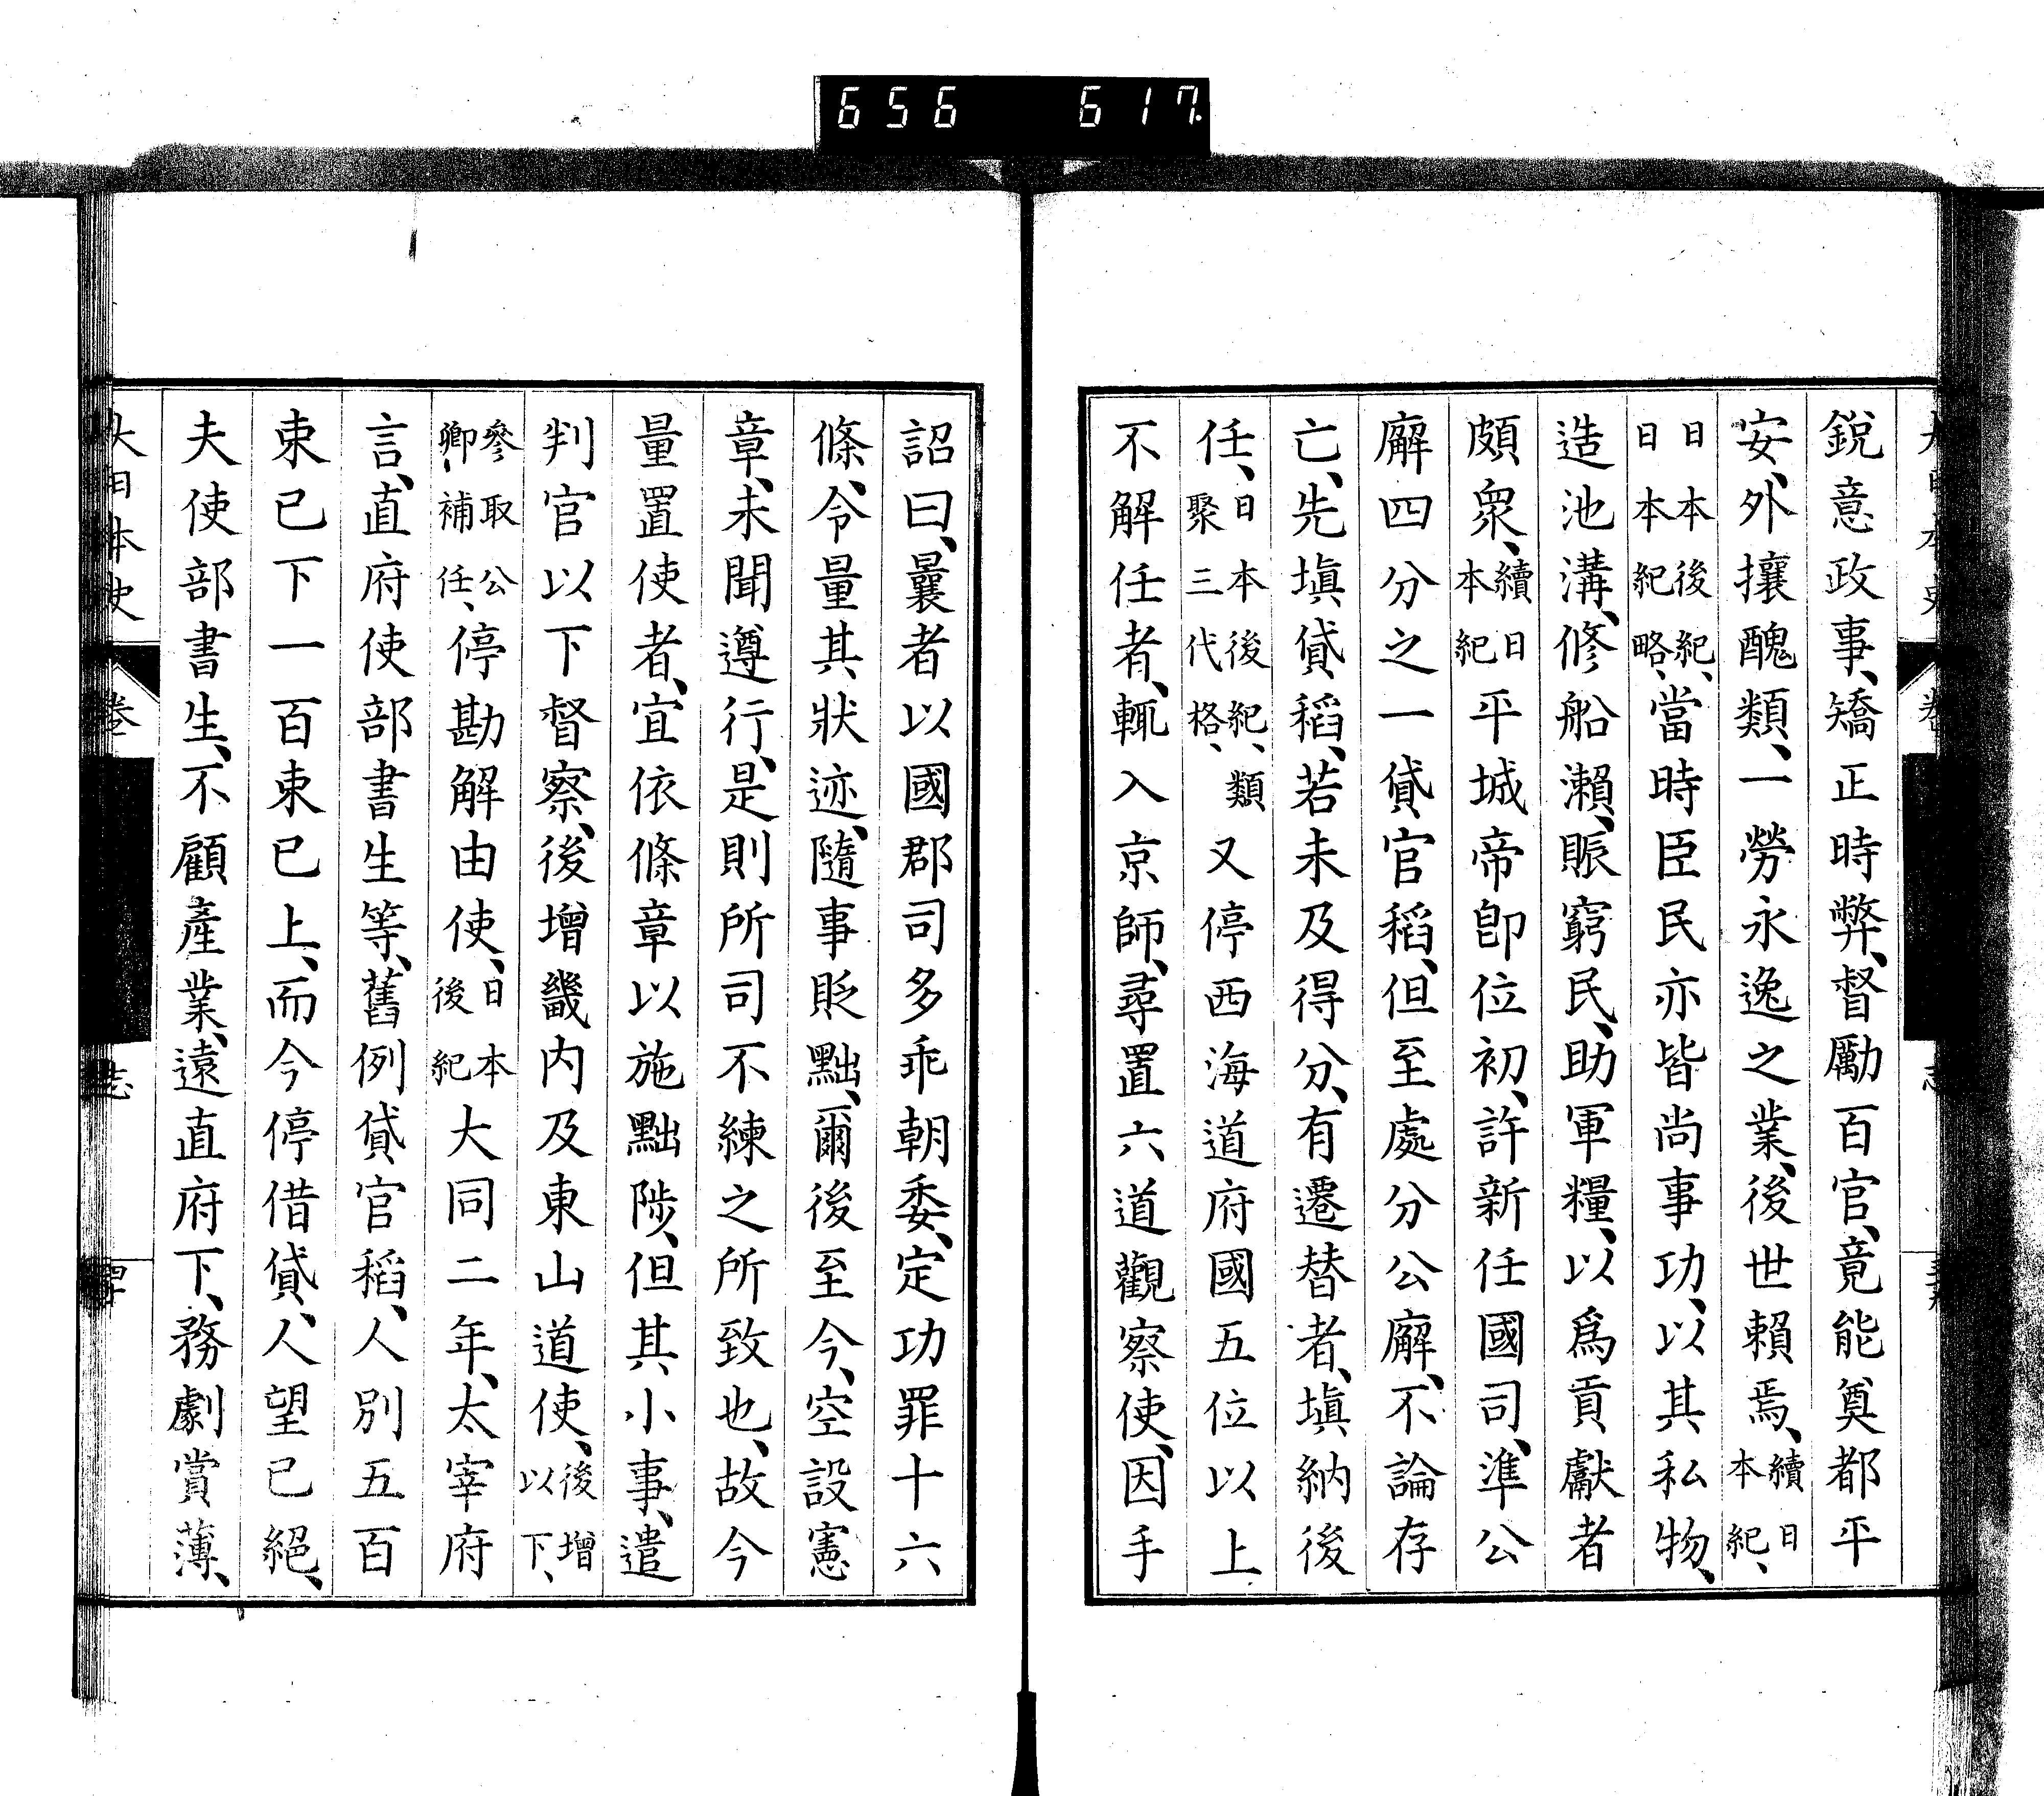 656 617
銳意政事、矯正時弊、督勵百官、竟能奠都平
安、外攘醜類、一勞永逸之業、後世賴焉、續日本紀、
日本後紀、日本紀略、當時臣民亦皆尚事功、以其私物、
造池溝、修船瀨、賑窮民、助軍糧、以爲貢獻者
頗衆、續日本紀平城帝卽位初、許新任國司、準公
廨四分之一貸官稻、但至處分公廨、不論存
亡、先塡貸稻、若未及得分、有遷替者、塡納後
任、日本後紀、類聚三代格、又停西海道府國五位以上
不解任者、輒入京師、尋置六道觀察使、因手
詔曰、曩者以國郡司多乖朝委、定功罪十六
條、令量其狀迹、隨事貶黜、爾後至今、空設憲
章、未聞遵行、是則所司不練之所致也、故今
量置使者、宜依條章以施黜陟、但其小事、遣
判官以下督察、後增畿內及東山道使、後增以下、
參取公卿補任、停勘解由使、日本後紀大同二年、太宰府
言、直府使部書生等、舊例貸官稻、人別五百
束已下一百束已上、而今停借貸、人望已絕、
夫使部書生、不顧產業、遠直府下、務劇賞薄、
大日本史 卷 志